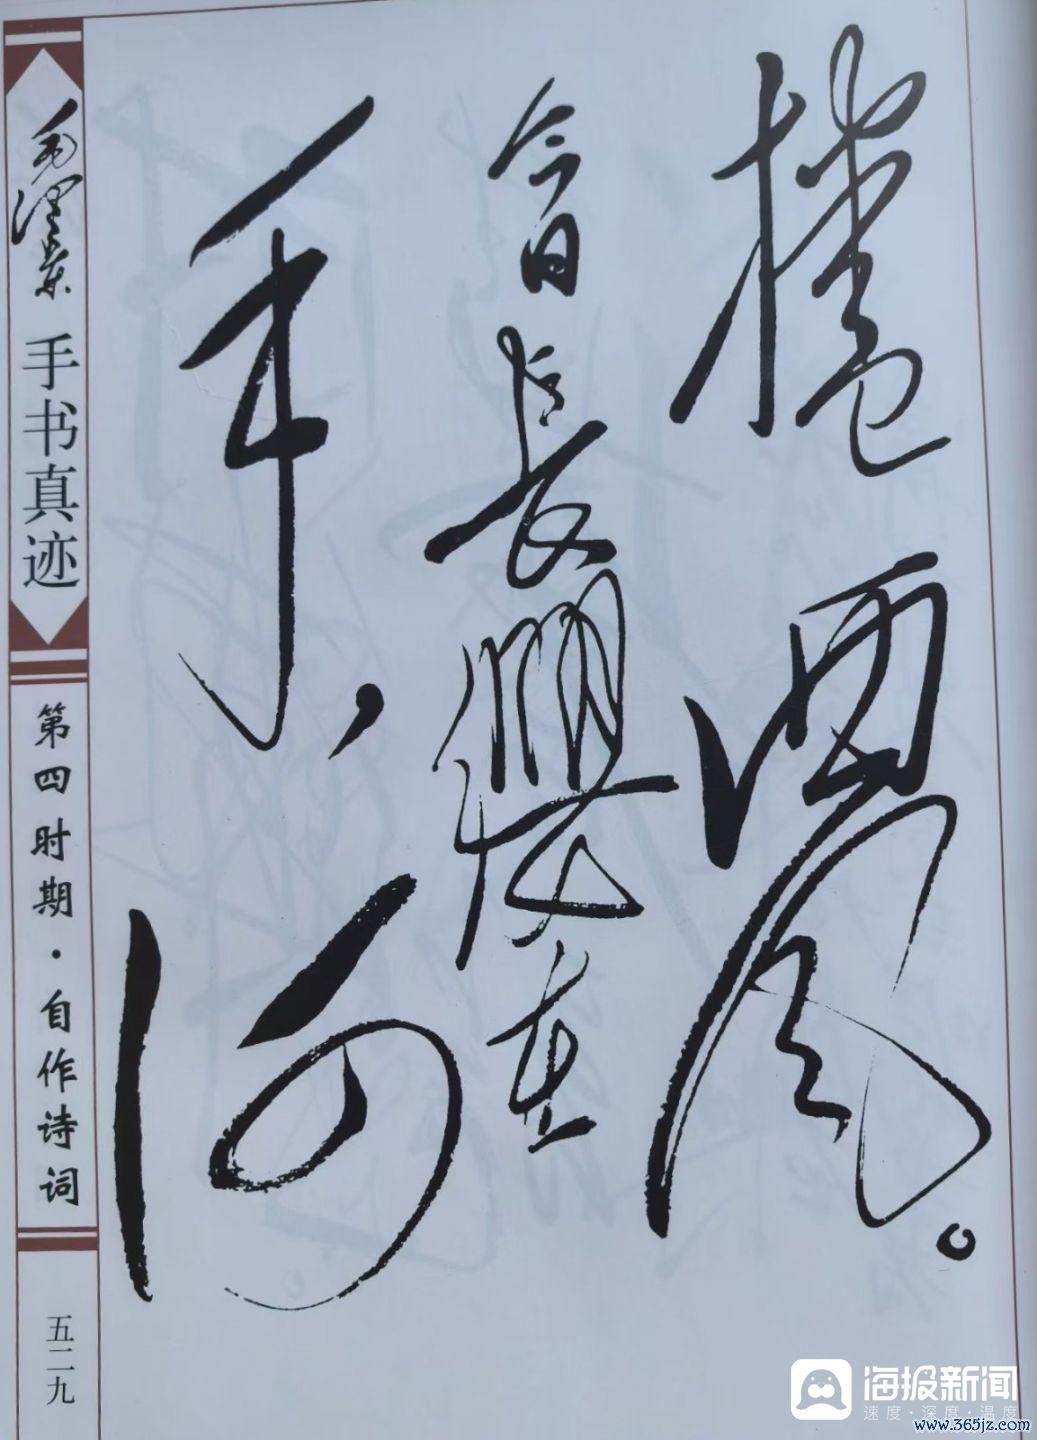 捲西風。
今日長纓在
手，何
毛澤东
手书真迹
第四时期·自作诗词
五二九
海报新闻
速度·深度·温度
www.365jz.com